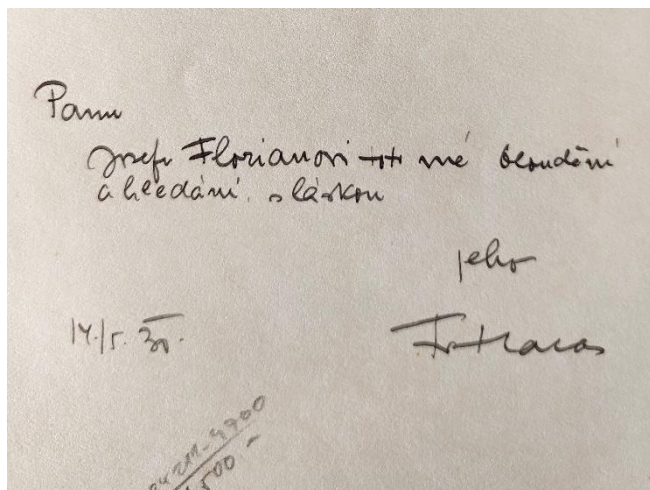 Panu
Josefu Florianovi toto mé bloudění
a hledání s láskou
jeho
Fr Halas
14./5. 30.